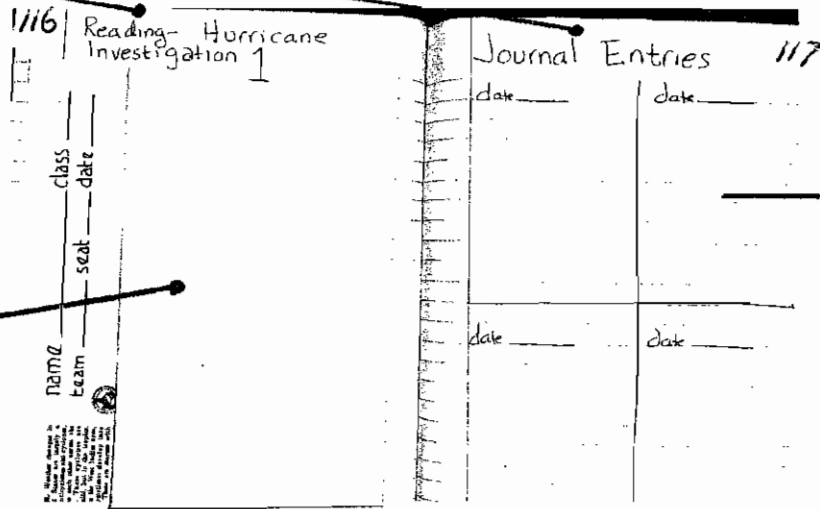 1116
Reading- Hurricane
Investigation 1
name class
team seat date
Journal Entries 117
date date
date date